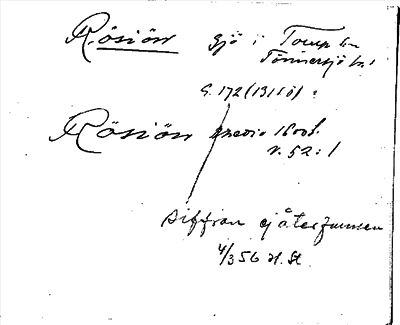 Rösiön sjö i Torup sn
Tönnersjö hd
G. 172 (1311 ö) :
Rösiön medio 1600t.
v. 52:1
Siffran ej återfunnen
4/3 56 H. St.